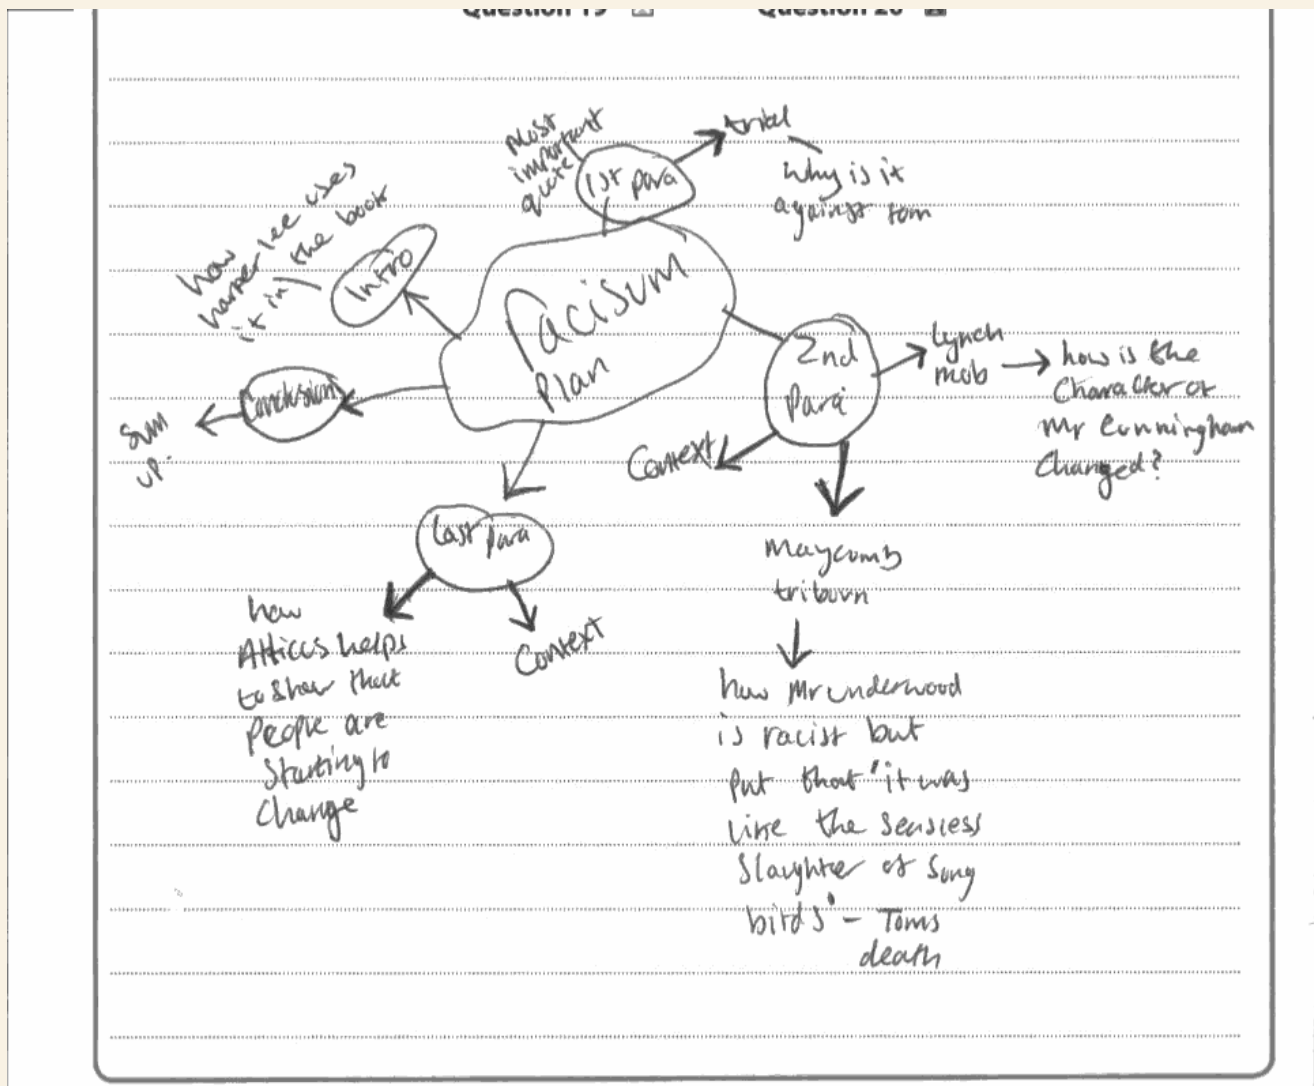 Question 19
Question 20
Racisum
Plan
Intro
how
harper lee uses
it in the book
1st para
most
important
quote
trial
Why is it
against tom
2nd
Para
lynch
mob
how is the
Character of
Mr Cunningham
Changed?
Context
Maycomb
triburn
how Mr underwood
is racist but
Put that "it was
like the sensless
Slaughter of Song
birds" - Toms
death
last para
how
Atticus helps
to show that
People are
Starting to
Change
Context
Conclusion
Sum
up.